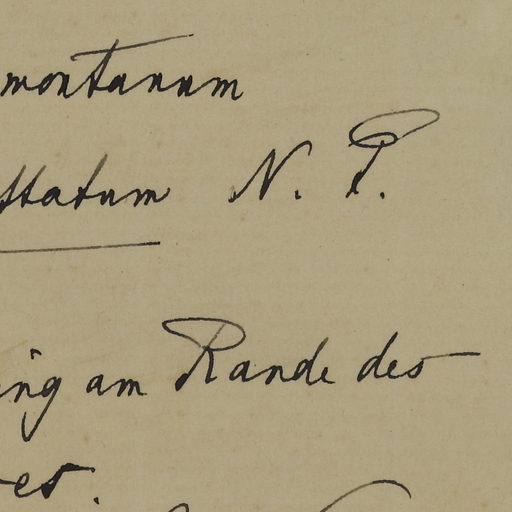 montanum
ttatum N. P.
ing am Rande des
es.